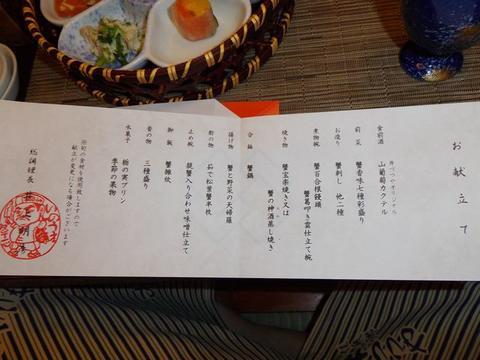 お献立て
食前酒
井づつやオリジナル
山葡萄カクテル
前菜
蟹香味七種彩盛り
お造り
蟹刺し 他二種
蟹葛叩き雲仕立て椀
煮物椀
蟹百合根饅頭
焼き物
蟹宝楽焼き又は
蟹の神酒蒸し焼き
台鍋
蟹鍋
揚げ物
蟹と野菜の天婦羅
蟹の物
茹で松葉蟹半枚
止め椀
親蟹入り合わせ味噌仕立て
御飯
蟹雑炊
香の物
三種盛り
水菓子
栃の実プリン
季節の果物
※旬の食材を使用致しますので
献立が変更になる場合がございます
総調理長